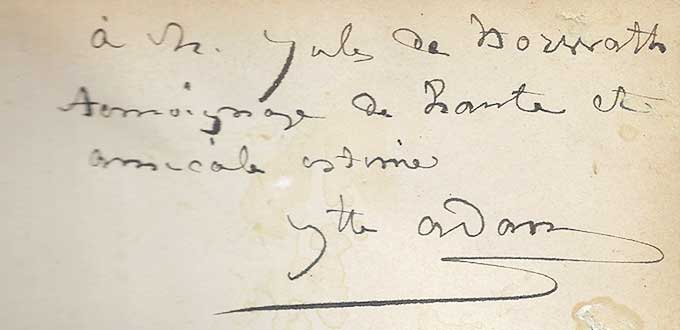 à M. Jules de Horvath
témoignage de haute et
amicale estime
Jtte Adam